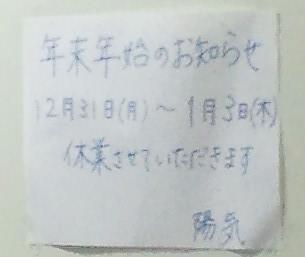 年末年始のお知らせ
12月31日(月)～1月3日(木)
休業させていただきます
陽気